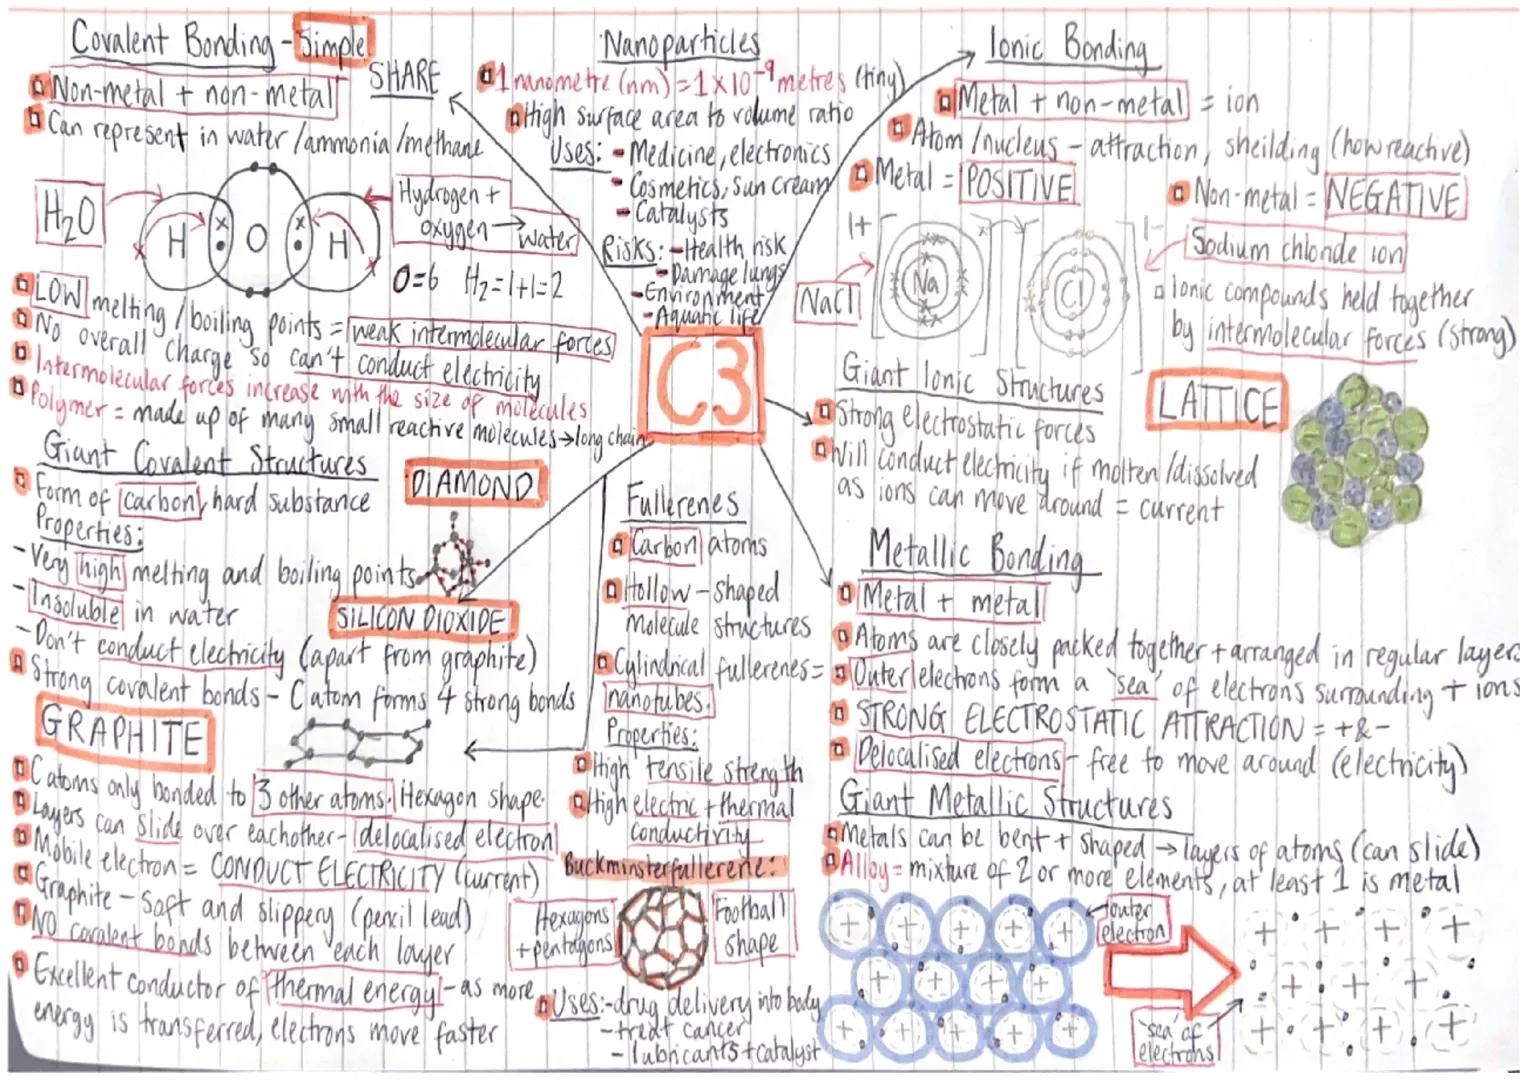 Covalent Bonding - Simple
SHARE
Non-metal + non-metal
Can represent in water/ammonia/methane
H₂O
H
O
H
Hydrogen +
oxygen → water
O=6 H₂=1+1=2
LOW melting/boiling points = weak intermolecular forces
No overall charge so can't conduct electricity
Intermolecular forces increase with the size of molecules
Polymer = made up of many small reactive molecules → long chain
Nanoparticles
1 nanometre (nm) = 1x10⁻⁹ metres (tiny)
High surface area to volume ratio
Uses: - Medicine, electronics
- Cosmetics, sun cream
- Catalysts
Risks: - Health risk
- Damage lungs
- Environment
- Aquatic life
C3
Ionic Bonding
Metal + non-metal = ion
Atom/nucleus - attraction, sheilding (how reactive)
Metal = POSITIVE
Non-metal = NEGATIVE
1+
Na
Cl
1-
NaCl
Sodium chloride ion
Ionic compounds held together
by intermolecular forces (strong)
Giant Ionic Structures
Strong electrostatic forces
Will conduct electricity if molten/dissolved
as ions can move around = current
LATTICE
Giant Covalent Structures
Form of carbon, hard substance
Properties:
- Very high melting and boiling points
- Insoluble in water
- Don't conduct electricity (apart from graphite)
Strong covalent bonds - C atom forms 4 strong bonds
DIAMOND
SILICON DIOXIDE
GRAPHITE
C atoms only bonded to 3 other atoms. Hexagon shape.
Layers can slide over eachother - delocalised electron
Mobile electron = CONDUCT ELECTRICITY (current)
Graphite - soft and slippery (pencil lead)
NO covalent bonds between each layer
Excellent conductor of thermal energy - as more
energy is transferred, electrons move faster
Fullerenes
Carbon atoms
Hollow-shaped
molecule structures
Cylindrical fullerenes =
nanotubes.
Properties:
High tensile strength
High electric + thermal
conductivity
Buckminsterfullerene:
Hexagons
+ pentagons
Football
shape
Uses: - drug delivery into body
- treat cancer
- lubricants + catalyst
Metallic Bonding
Metal + metal
Atoms are closely packed together + arranged in regular layers
Outer electrons form a 'sea' of electrons surrounding + ions
STRONG ELECTROSTATIC ATTRACTION = + & -
Delocalised electrons - free to move around (electricity)
Giant Metallic Structures
Metals can be bent + shaped → layers of atoms (can slide)
Alloy = mixture of 2 or more elements, at least 1 is metal
outer
electron
'sea' of
electrons